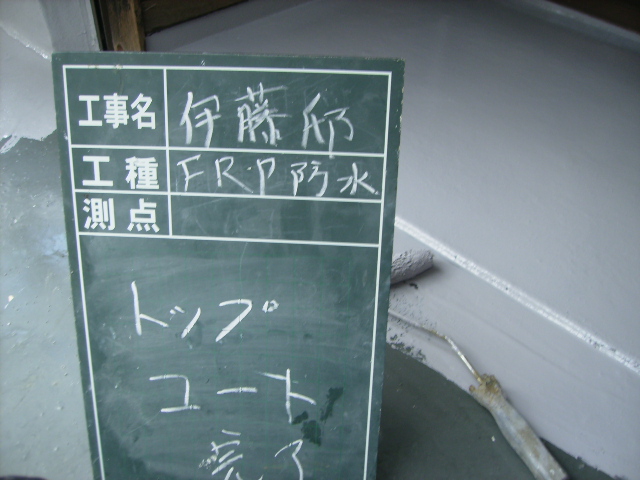 工事名 伊藤邸
工種 FRP防水
測点
トップ
コート
完了